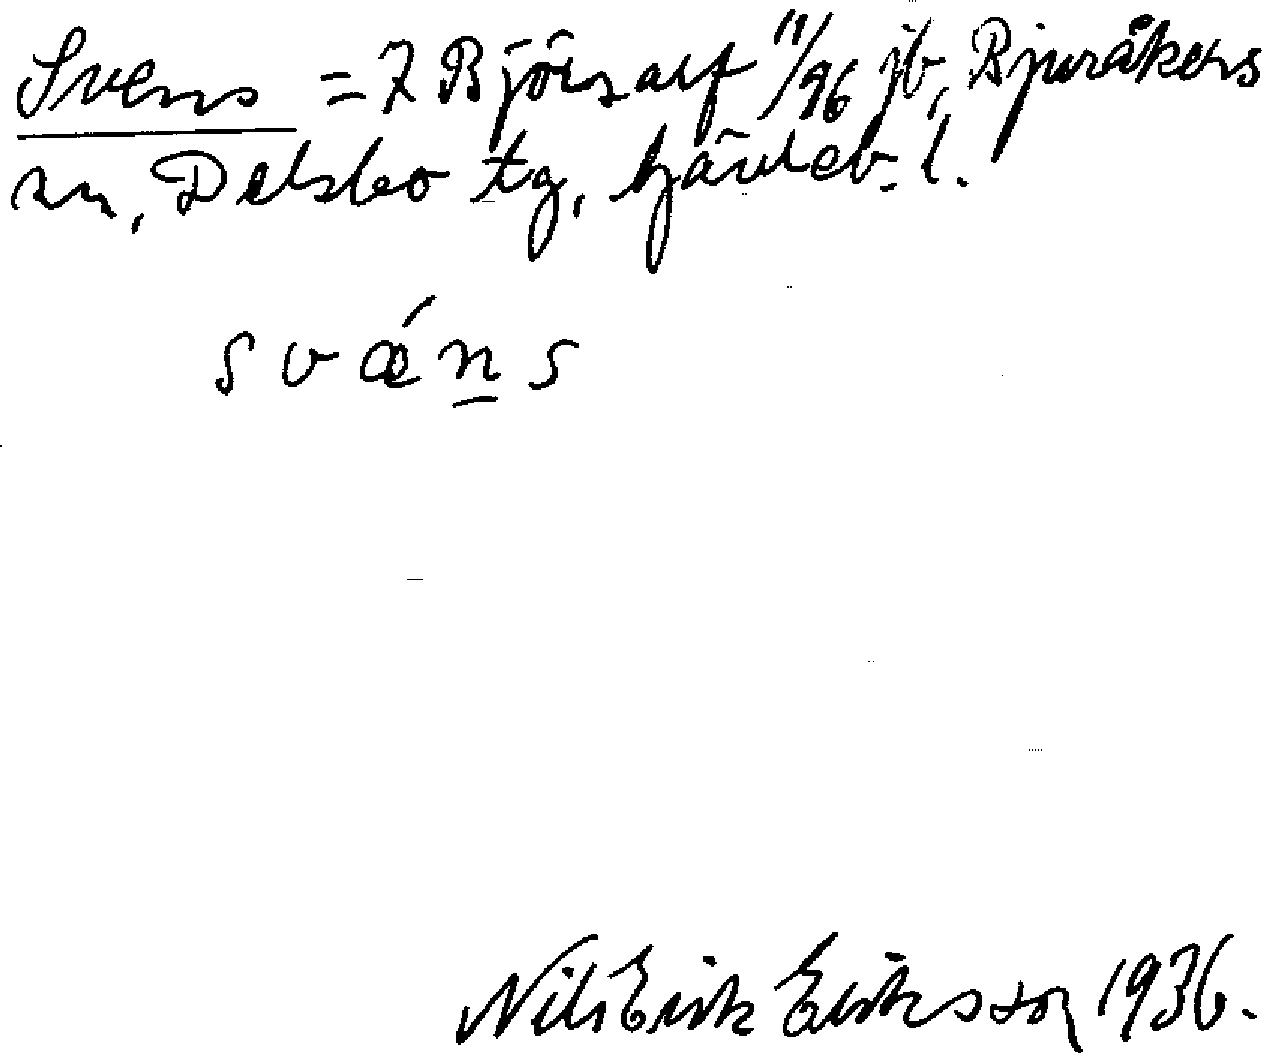 Svens = 7 Björsarf 11/96 jb, Bjuråkers
sn, Delsbo tg, Gävleb. l.
sváe̱ns
Nils Erik Eriksson 1936.